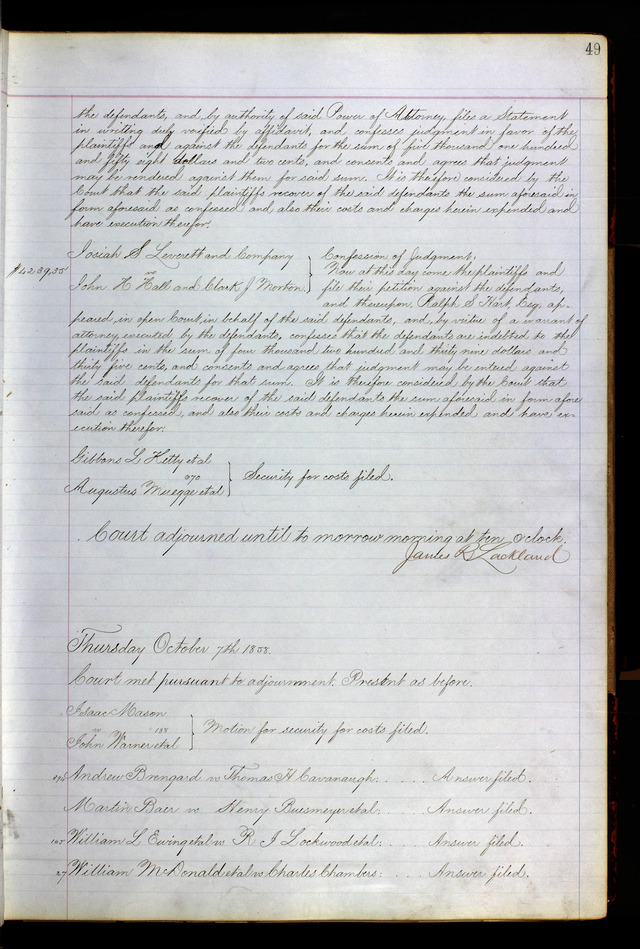 49
the defendants, and, by authority of said Power of Attorney, files a Statement
in writing duly verified by affidavit, and confesses judgment in favor of the
plaintiffs and against the defendants for the sum of five thousand one hundred
and fifty eight dollars and two cents, and consents and agrees that judgment
may be rendered against them for said sum. It is therefore considered by the
Court that the said plaintiffs recover of the said defendants the sum aforesaid in
form aforesaid as confessed and also their costs and charges herein expended and
have execution therefor.
Josiah S Leverett and Company } Confession of Judgment.
vs
$4239,35 John H Hall and Clark J Morton.
Now at this day come the plaintiffs and
file their petition against the defendants,
and thereupon, Ralph S Hart, Esq. ap-
peared in open Court in behalf of the said defendants, and, by virtue of a warrant of
attorney, executed by the defendants, confesses that the defendants are indebted to the
plaintiffs in the sum of four thousand two hundred and thirty nine dollars and
thirty five cents, and consents and agrees that judgment may be entered against
the said defendants for that sum. It is therefore considered by the Court that
the said plaintiffs recover of the said defendants the sum aforesaid in form afore
said as confessed, and also their costs and charges herein expended and have ex-
ecution therefor.
Gibbons L Kelty et al
} Security for costs filed.
Augustus Muegge et al
Court adjourned until to morrow morning at ten o clock.
James R Lackland
Thursday October 7th 1858.
Court met pursuant to adjournment. Present as before.
Isaac Mason
vs 188 } Motion for security for costs filed.
John Warner et al
Andrew Brengard vs Thomas H Cavanaugh. .... Answer filed.
Martin Baer vs Henry Buesmeyer et al. .... Answer filed.
William L Ewing et al vs R J Lockwood et al. .... Answer filed.
27 William McDonald et al vs Charles Chambers. .... Answer filed.